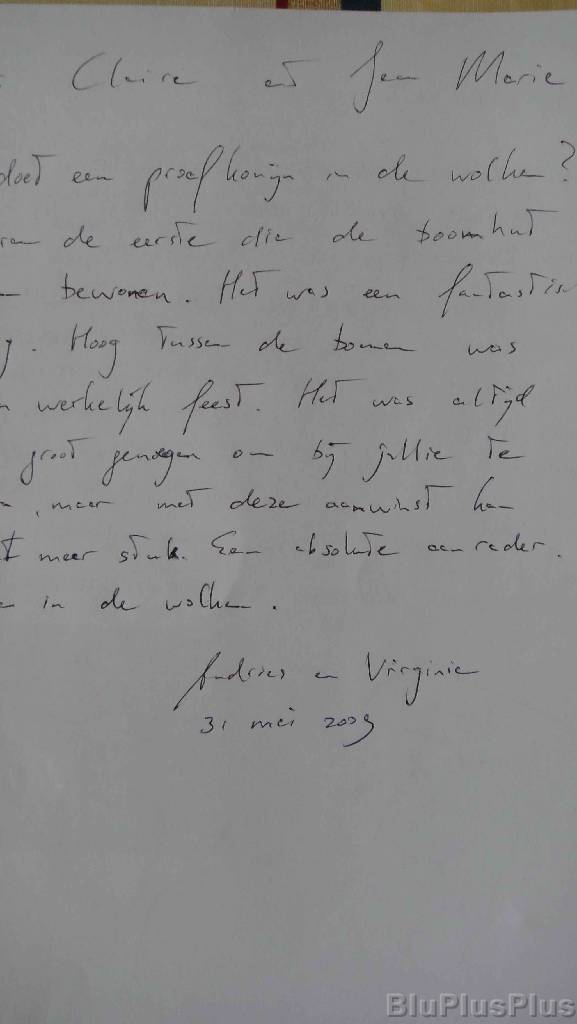 Claire et Jean Marie
doet een proefkonijn in de wolken?
de eerste die de boomhut
bewonen. Het was een fantastisch
. Hoog tussen de bomen was
werkelijk feest. Het was altijd
groot genoegen om bij jullie te
, maar met deze aanwinst kan
meer stuk. Een absolute aanrader.
in de wolken.
Andries en Virginie
31 mei 2009
BluPlusPlus